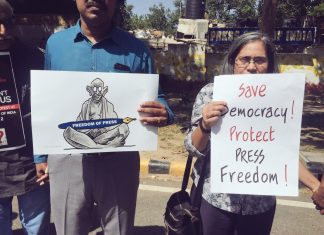 FREEDOM OF PRESS
Save
Democracy!
Protect
PRESS
Freedom!